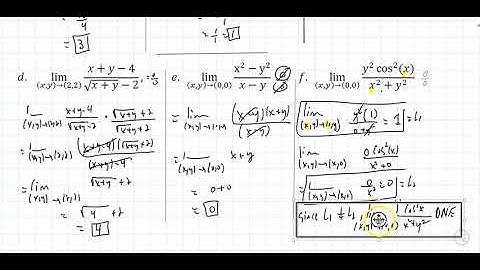 4
= 3
1
1/1 = 1
d. lim (x,y)→(2,2) (x + y − 4)/(√(x + y) − 2), = 0/0
lim (x,y)→(2,2) (x+y-4)/(√(x+y) -2) · (√(x+y) +2)/(√(x+y) +2)
lim (x,y)→(2,2) (x+y-4)(√(x+y) +2)/(x+y-4)
= lim (x,y)→(2,2) √(x+y) +2
= √4 +2
= 4
e. lim (x,y)→(0,0) (x² − y²)/(x − y) 0/0
lim (x-y)(x+y)/(x-y)
= lim (x,y)→(0,0) x+y
= 0+0
= 0
f. lim (x,y)→(0,0) (y² cos²(x))/(x² + y²) 0/0
lim y²(1)/(0+y²) = 1 = L₁
lim (x,y)→(x,0) 0 cos²(x)/(x²+0)
= lim (x,y)→(x,0) 0/x² = 0 = L₂
Since L₁ ≠ L₂, cos²x/(x²+y²) DNE